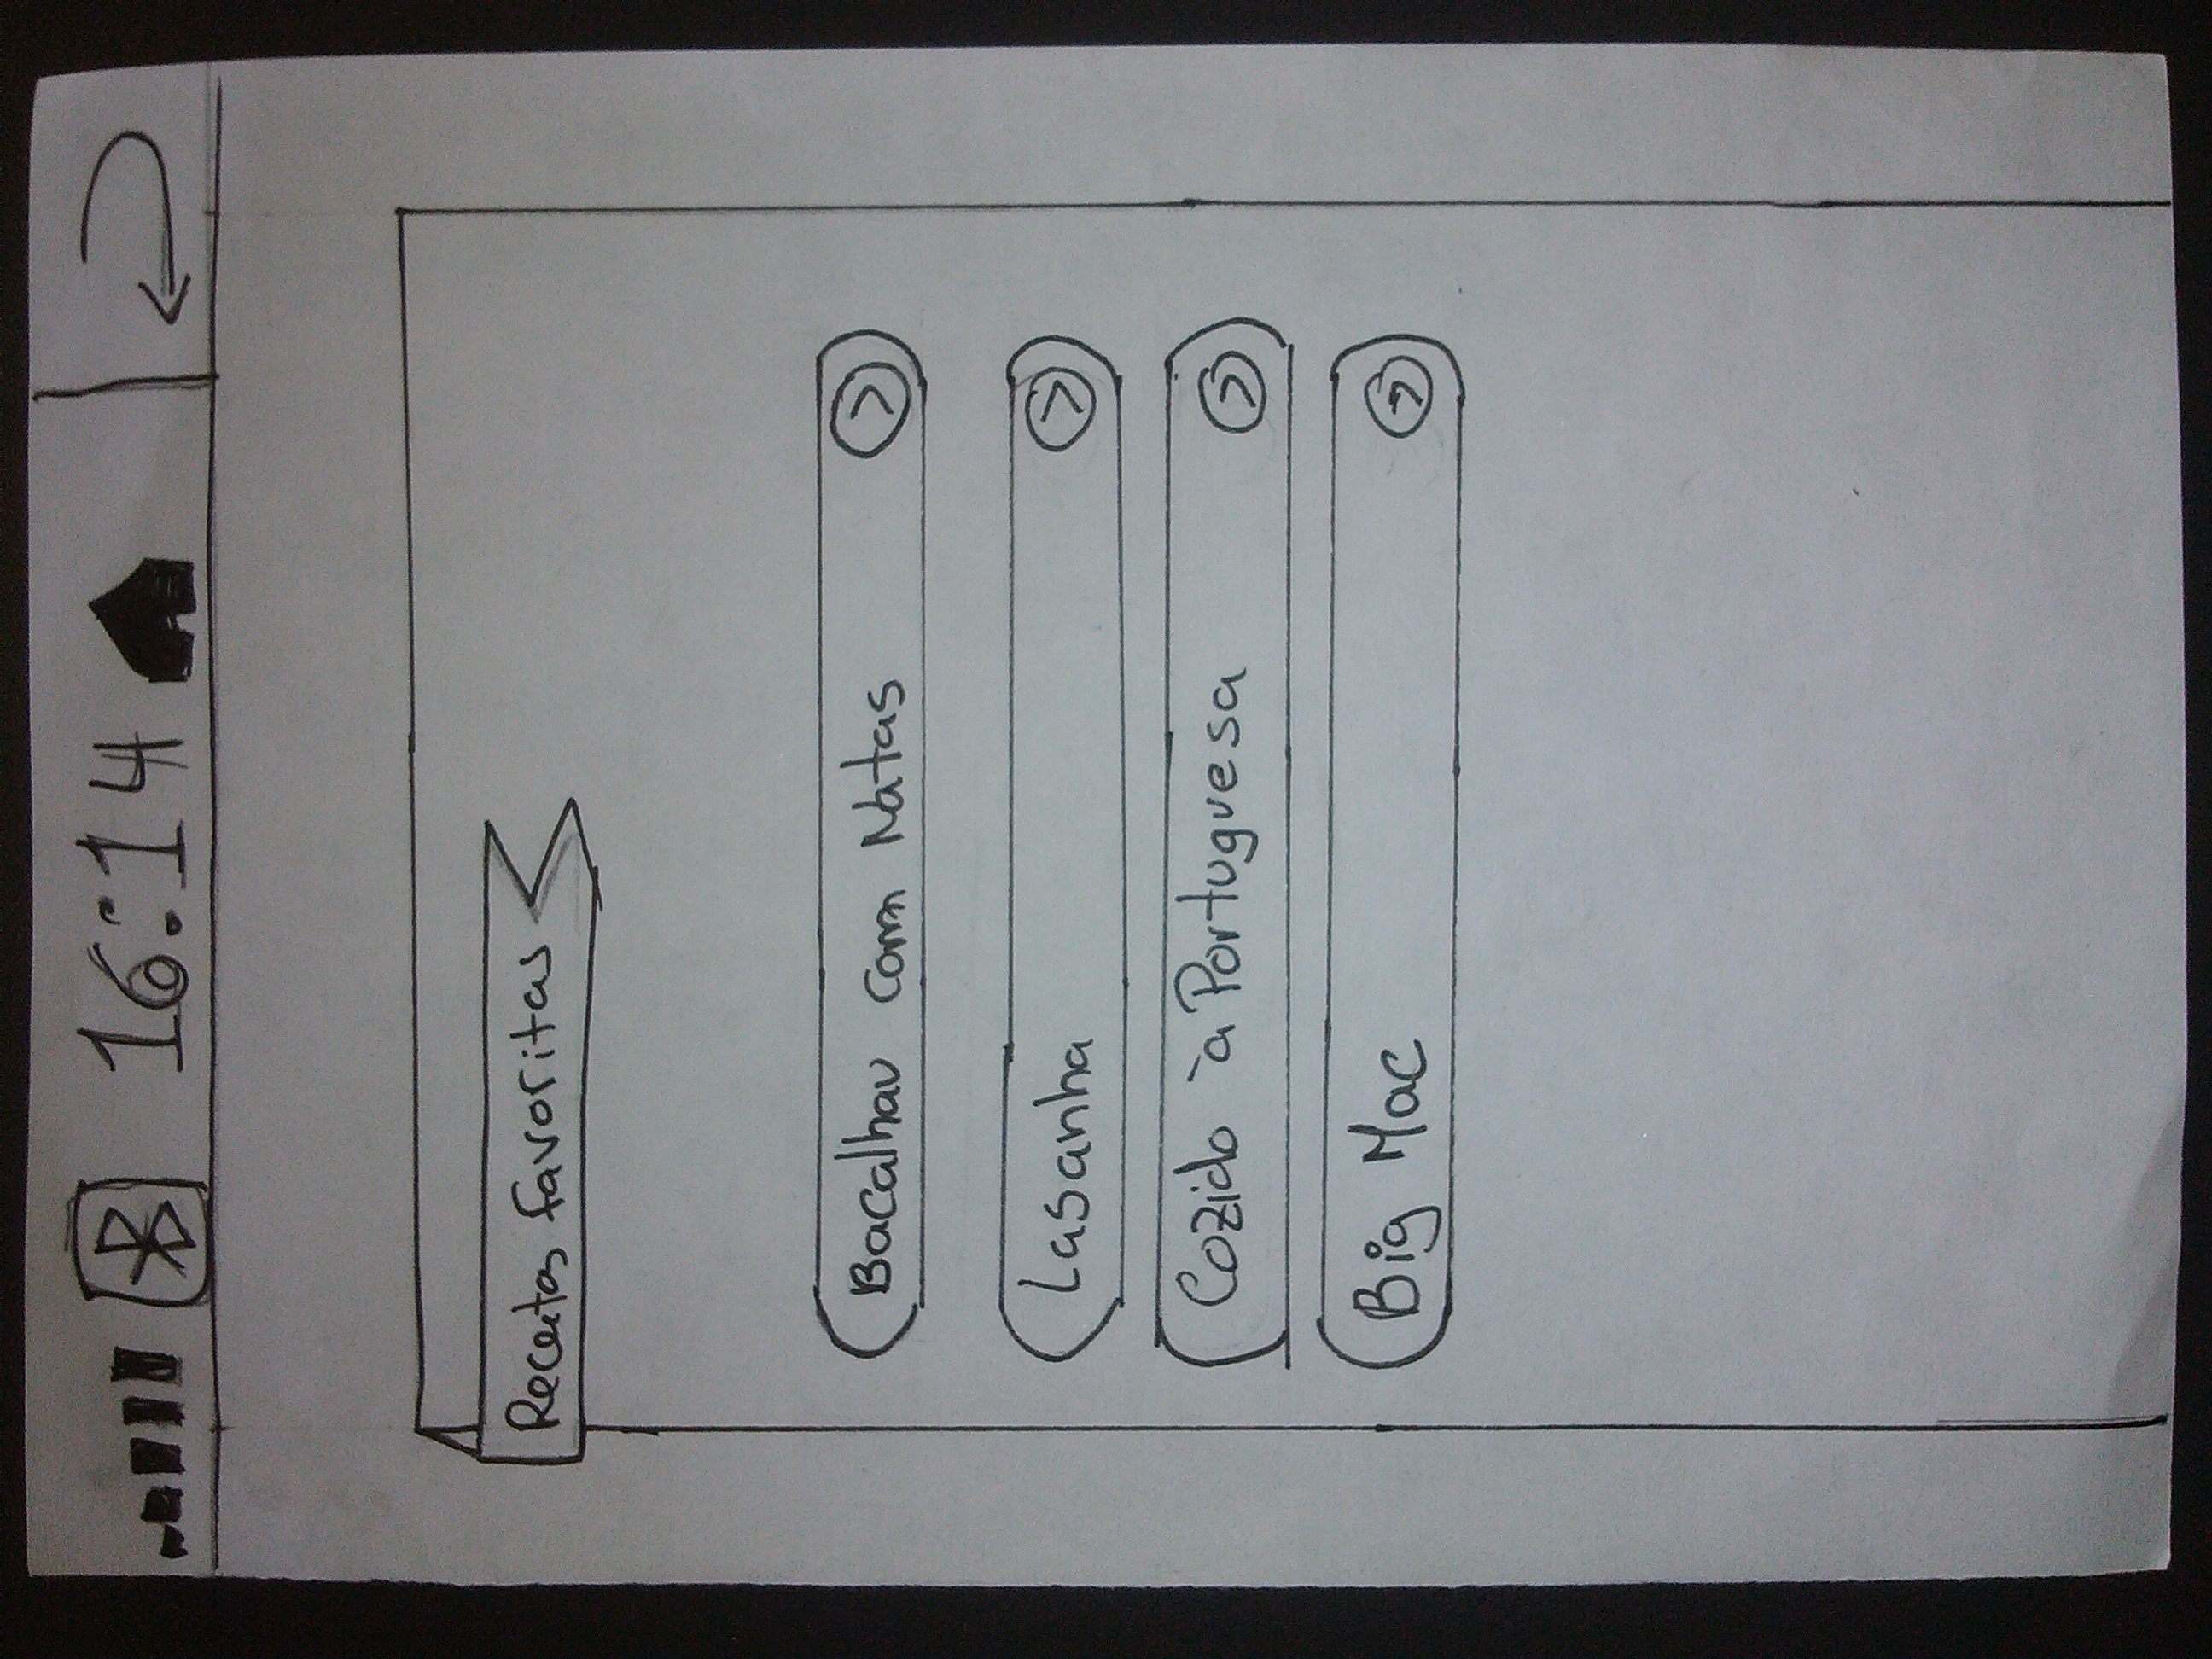 16:14
Receitas favoritas
Bacalhau com Natas
Lasanha
Cozido à Portuguesa
Big Mac